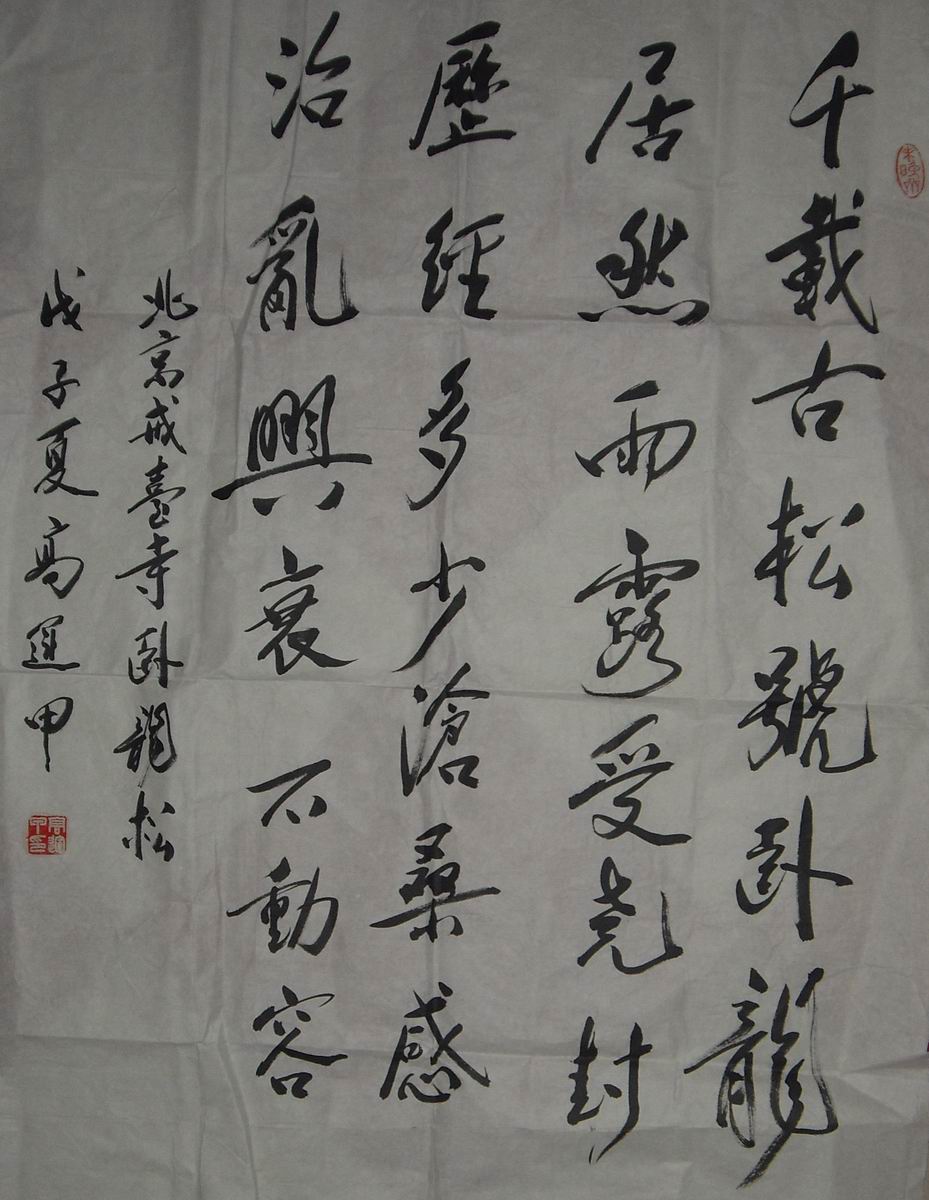 千載古松號卧龍
居然雨露受堯封
歷經多少滄桑感
治亂興衰不動容
北京戒臺寺卧龍松
戊子夏高運甲